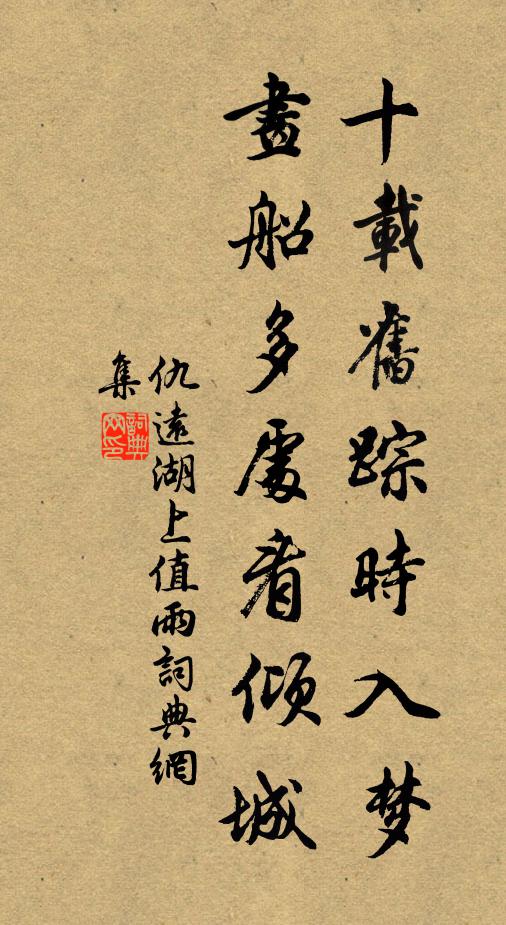 十載舊踪時入梦
畫船多處看傾城
仇遠湖上值雨詞典網
集
詞典網印